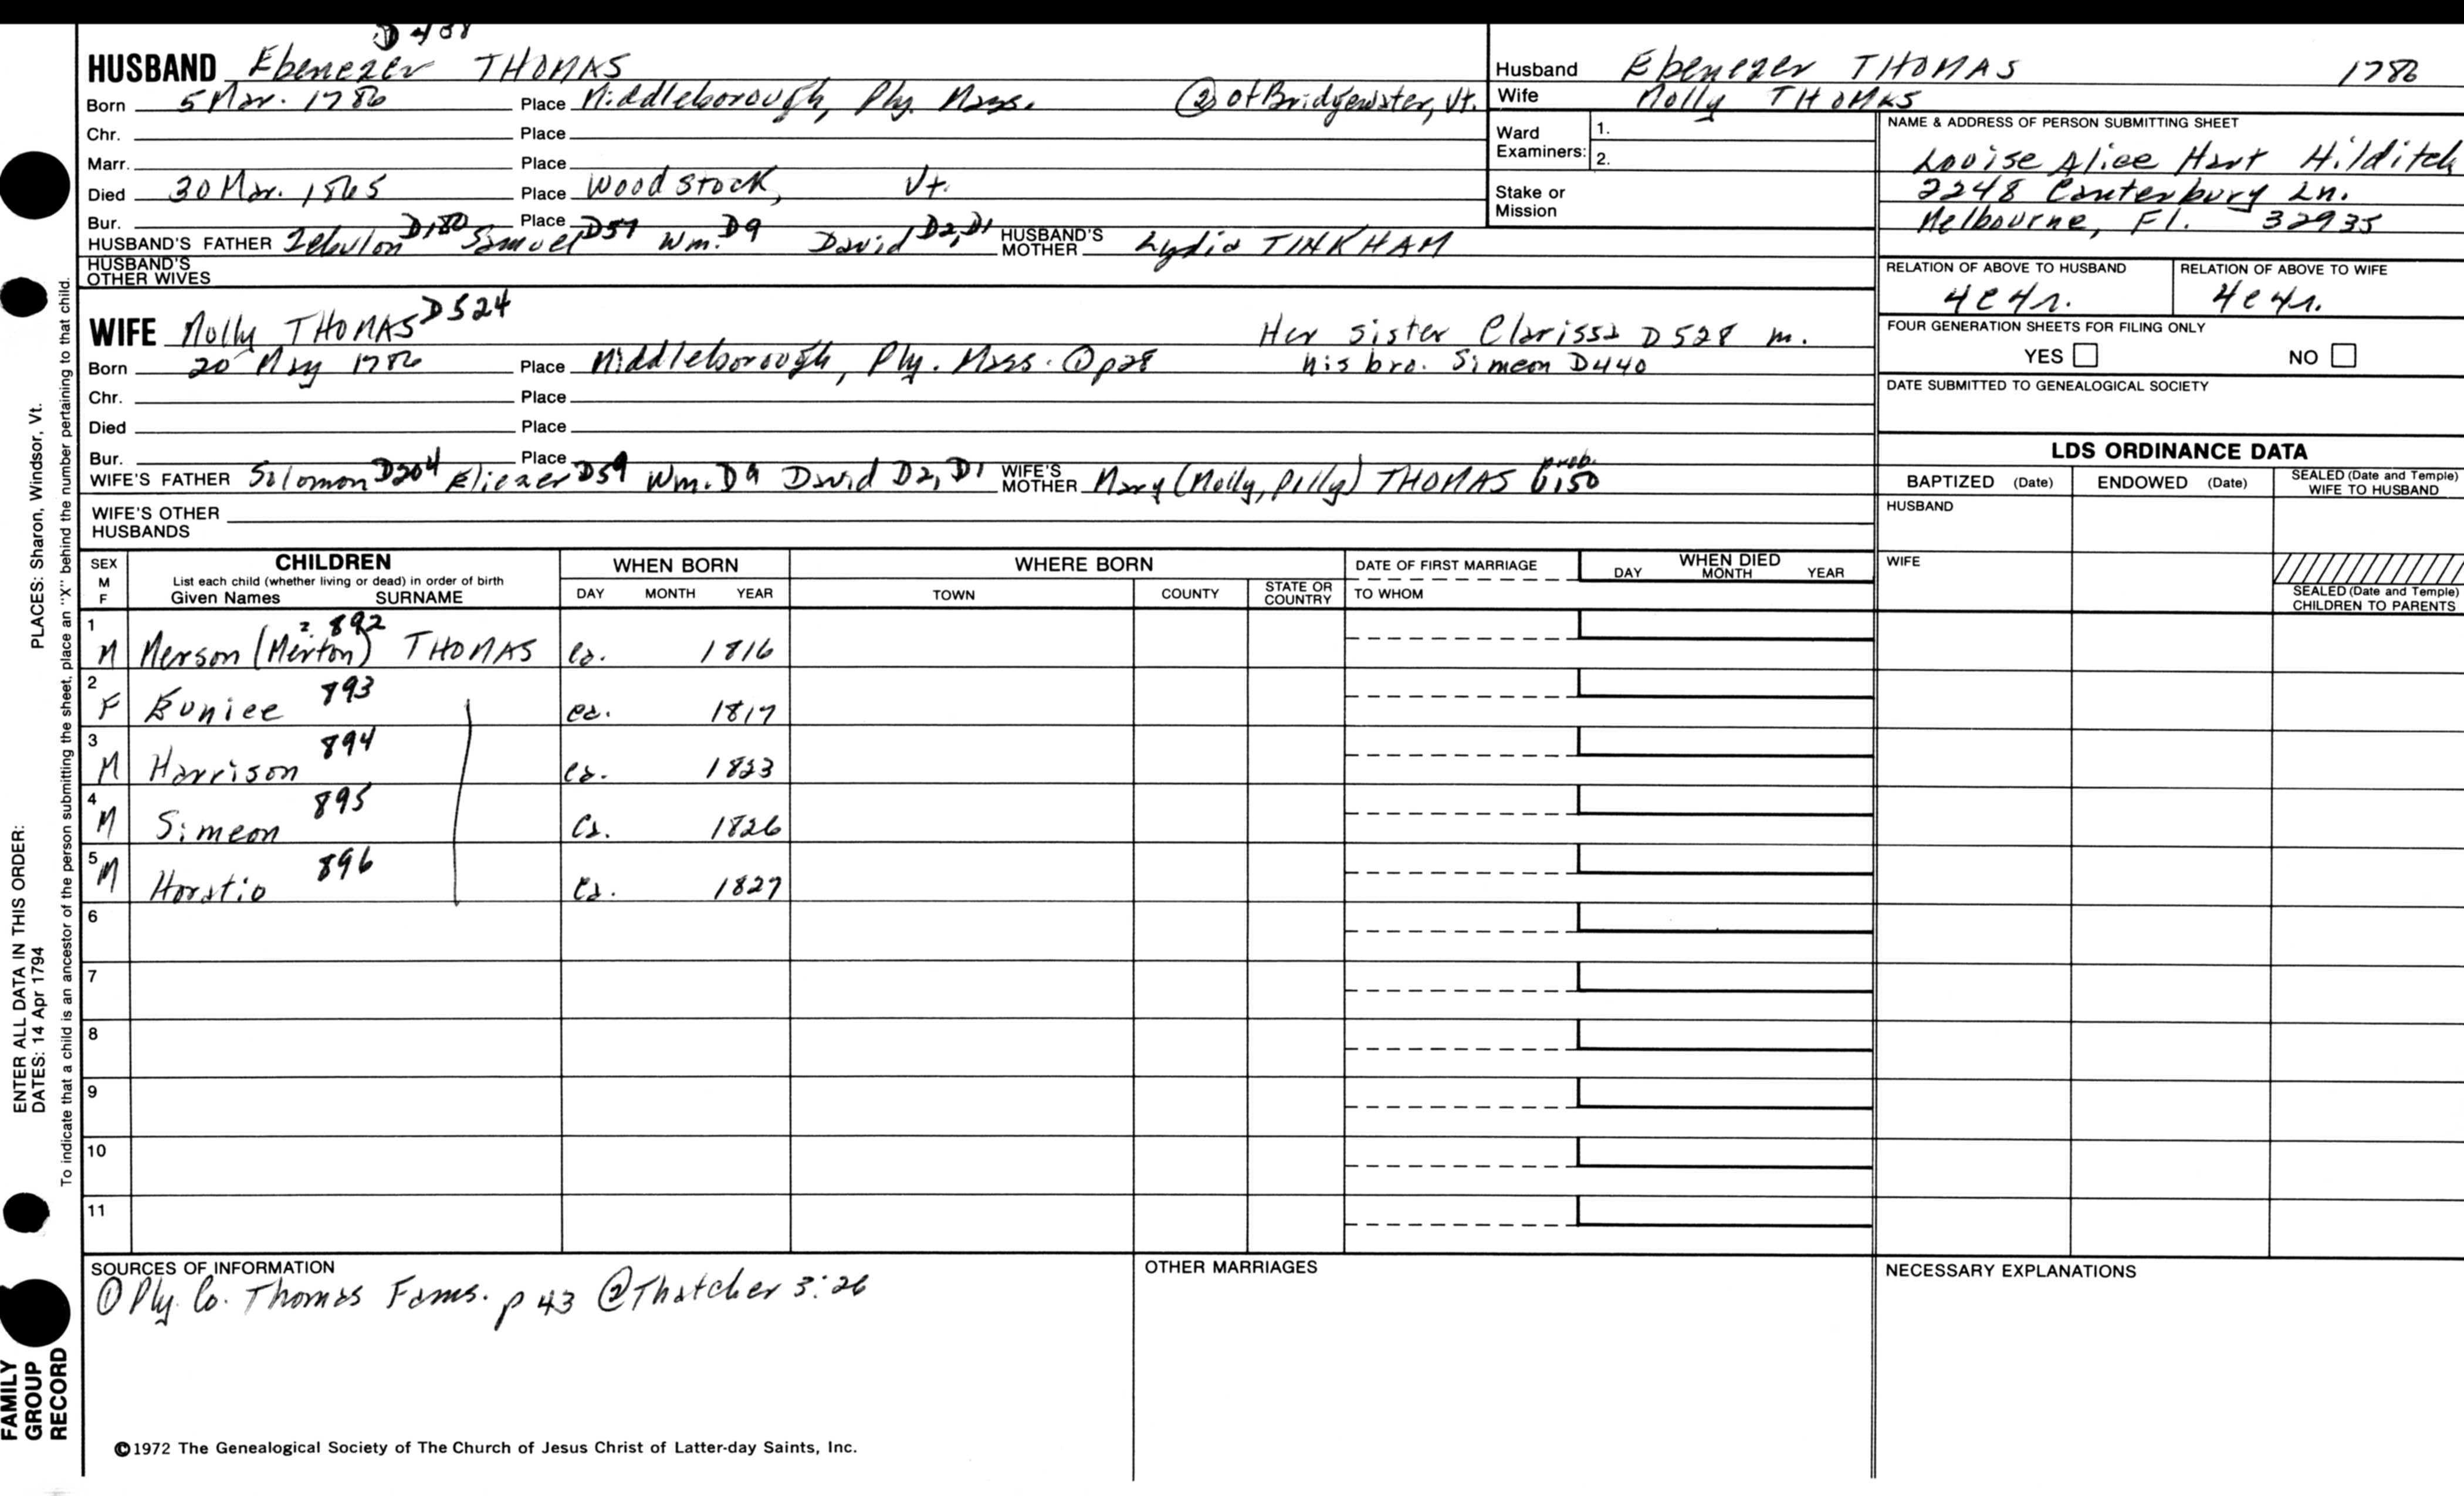 HUSBAND Ebenezer THOMAS
Born 5 Mar. 1786 Place Middleborough, Ply. Mass. ② of Bridgewater, Vt.
Chr. Place
Marr. Place
Died 30 Mar. 1865 Place Woodstock, Vt.
Bur. Place
HUSBAND'S FATHER Zebulon D180 Samuel D57 Wm. D9 David D2, D1 HUSBAND'S MOTHER Lydia TINKHAM
HUSBAND'S OTHER WIVES
WIFE Molly THOMAS D524 Her sister Clarissa D528 m.
Born 20 May 1786 Place Middleborough, Ply. Mass. ① p28 his bro. Simeon D440
Chr. Place
Died Place
Bur. Place
WIFE'S FATHER Solomon D204 Eliezer D59 Wm. D9 David D2, D1 WIFE'S MOTHER Mary (Molly, Polly) THOMAS prob.
WIFE'S OTHER HUSBANDS
Husband Ebenezer THOMAS 1786
Wife Molly THOMAS
Ward Examiners: 1.
2.
Stake or Mission
NAME & ADDRESS OF PERSON SUBMITTING SHEET
Louise Alice Hart Hilditch
2248 Canterbury Ln.
Melbourne, Fl. 32935
RELATION OF ABOVE TO HUSBAND RELATION OF ABOVE TO WIFE
4c4r. 4c4r.
FOUR GENERATION SHEETS FOR FILING ONLY
YES NO
DATE SUBMITTED TO GENEALOGICAL SOCIETY
LDS ORDINANCE DATA
BAPTIZED (Date) ENDOWED (Date) SEALED (Date and Temple) WIFE TO HUSBAND
HUSBAND
WIFE
SEALED (Date and Temple) CHILDREN TO PARENTS
SEX M F CHILDREN List each child (whether living or dead) in order of birth Given Names SURNAME WHEN BORN DAY MONTH YEAR WHERE BORN TOWN COUNTY STATE OR COUNTRY DATE OF FIRST MARRIAGE TO WHOM WHEN DIED DAY MONTH YEAR
1 M Merson (Merton) THOMAS 892 ca. 1816
2 F Eunice 893 ca. 1817
3 M Harrison 894 ca. 1823
4 M Simeon 895 ca. 1826
5 M Horatio 896 ca. 1827
6
7
8
9
10
11
SOURCES OF INFORMATION
① Ply. Co. Thomas Fams. p 43 ② Thatcher 3:26
OTHER MARRIAGES
NECESSARY EXPLANATIONS
©1972 The Genealogical Society of The Church of Jesus Christ of Latter-day Saints, Inc.
FAMILY GROUP RECORD
ENTER ALL DATA IN THIS ORDER:
DATES: 14 Apr 1794 PLACES: Sharon, Windsor, Vt.
To indicate that a child is an ancestor of the person submitting the sheet, place an "X" behind the number pertaining to that child.